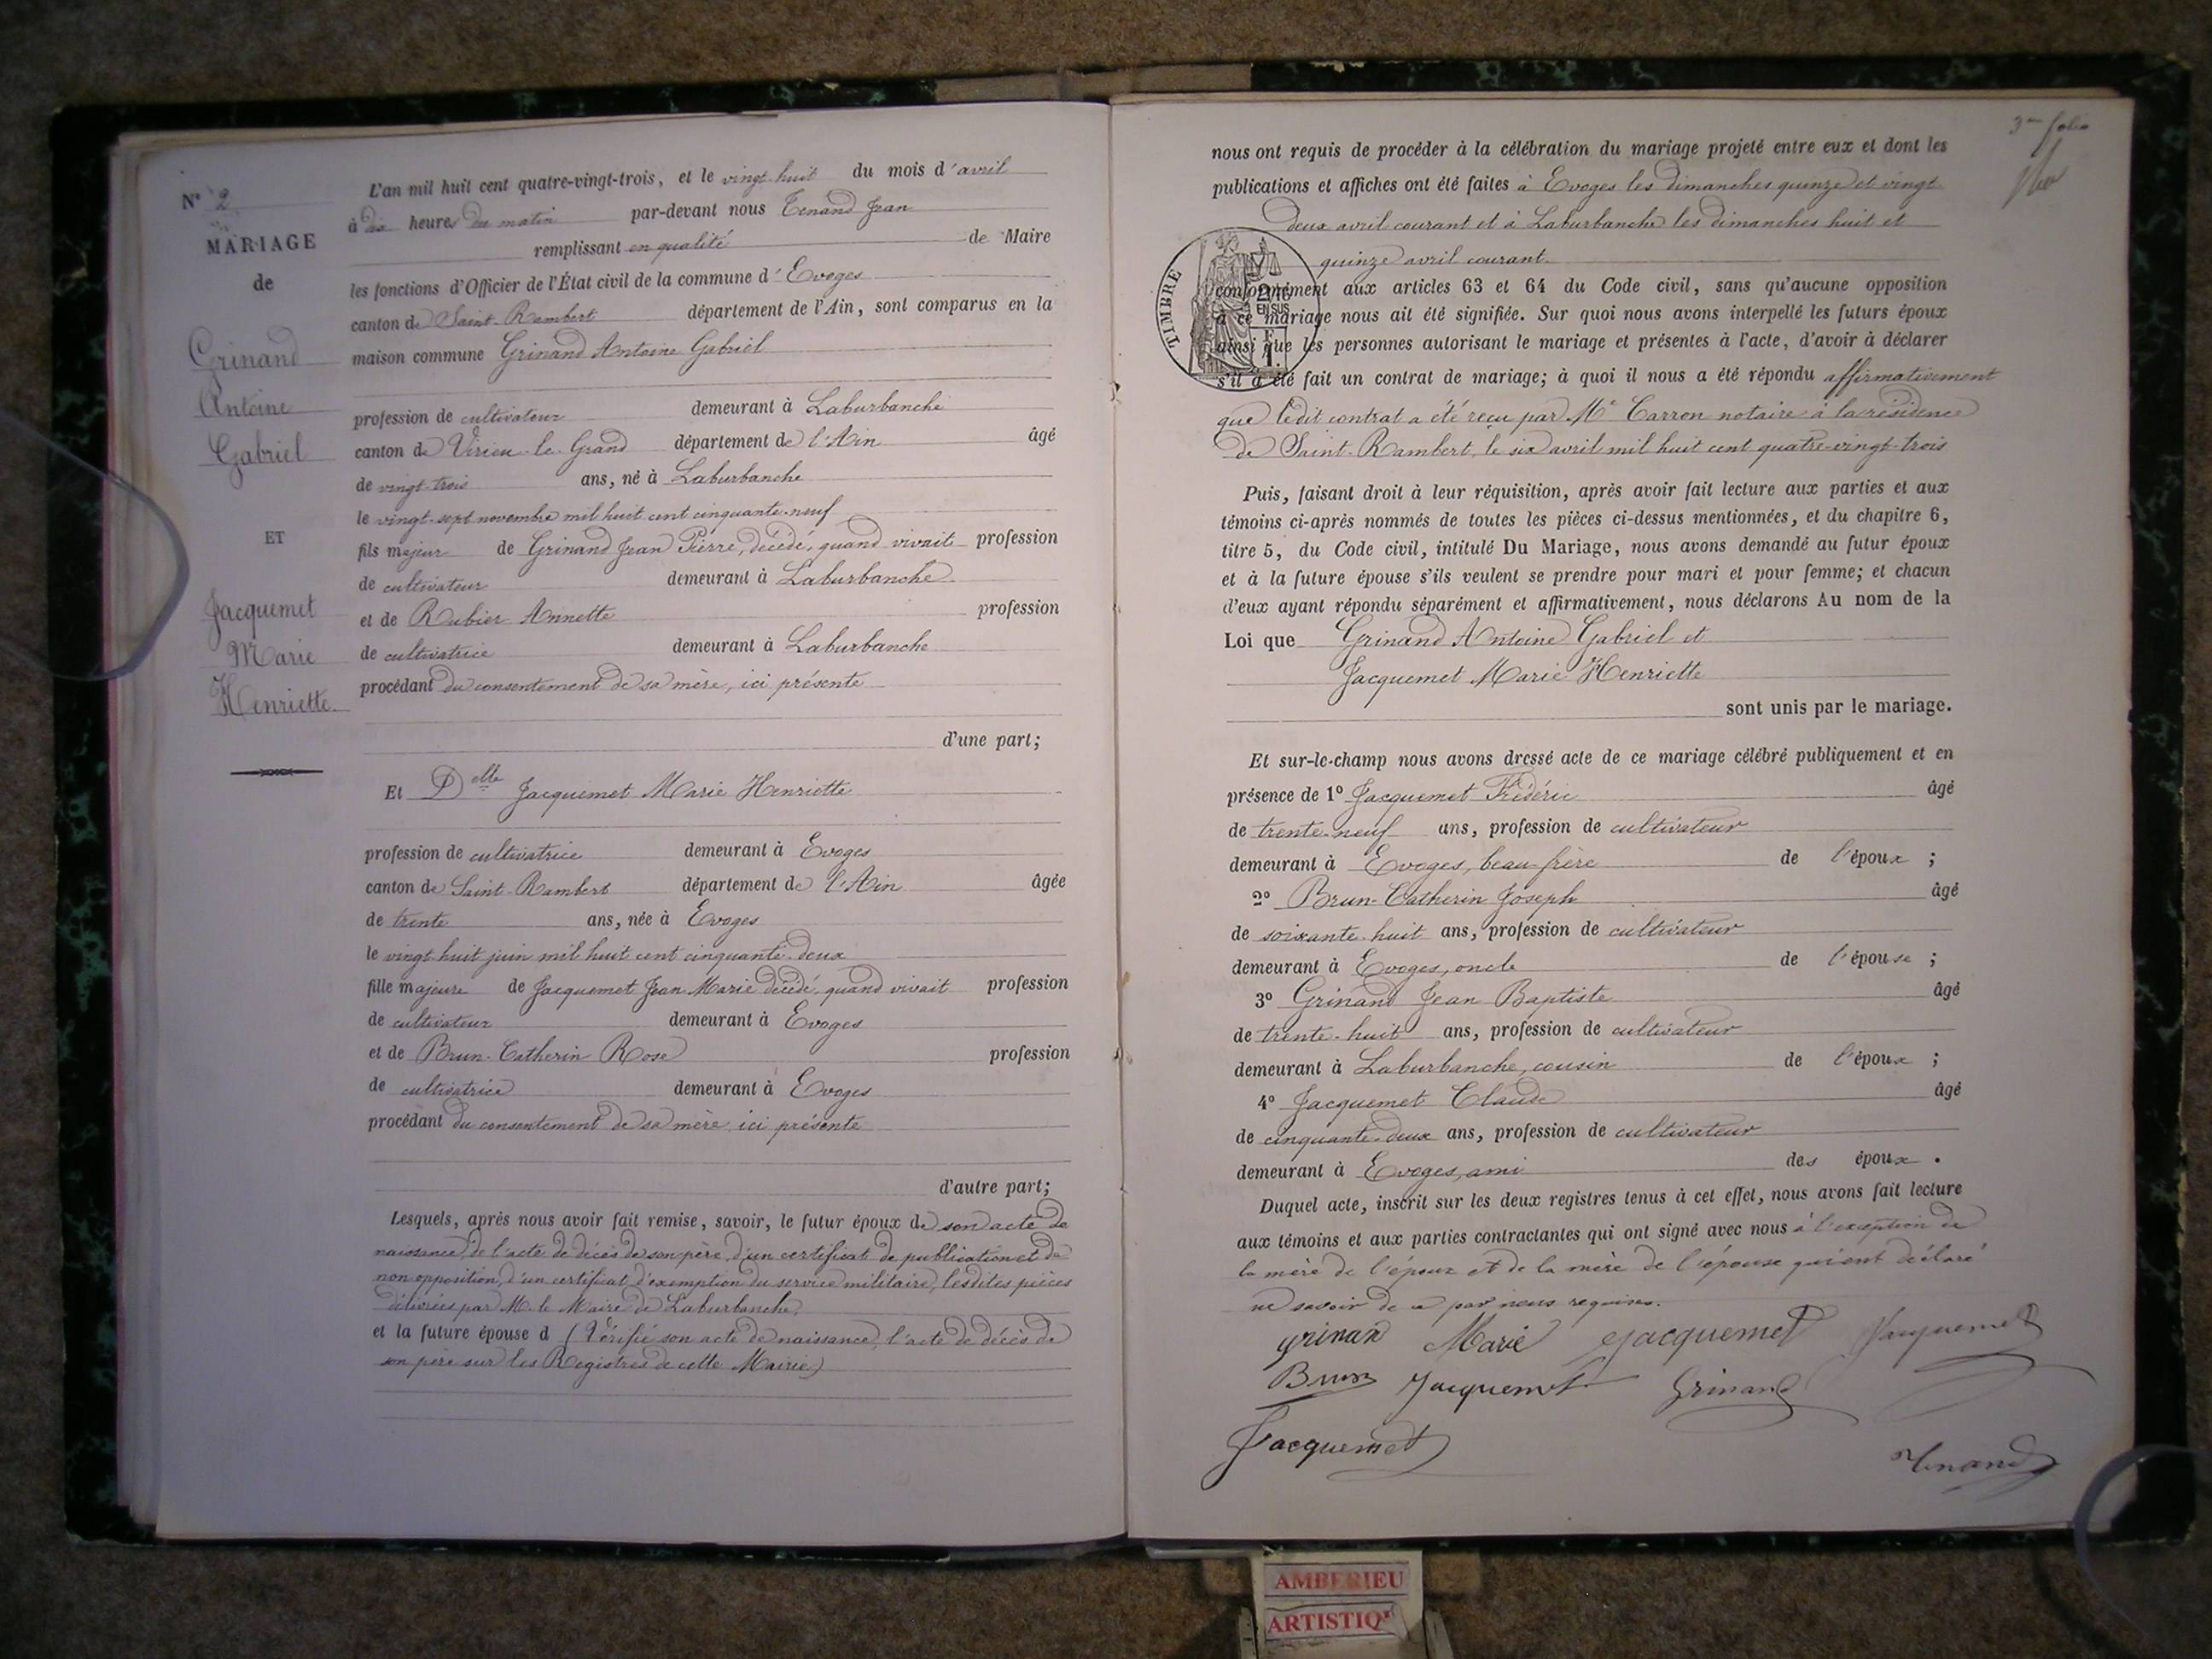 N° 2
MARIAGE
de
Grinand
Antoine
Gabriel
ET
Jacquemet
Marie
Henriette
L'an mil huit cent quatre-vingt-trois, et le vingt-huit du mois d'avril
à dix heures du matin par-devant nous Tenand Jean
remplissant en qualité de Maire
les fonctions d'Officier de l'État civil de la commune d'Evoges
canton de Saint-Rambert département de l'Ain, sont comparus en la
maison commune Grinand Antoine Gabriel
profession de cultivateur demeurant à Laburbanche
canton de Virieu-le-Grand département de l'Ain âgé
de vingt-trois ans, né à Laburbanche
le vingt-sept novembre mil huit cent cinquante-neuf
fils majeur de Grinand Jean Pierre, décédé, quand vivait profession
de cultivateur demeurant à Laburbanche
et de Rubier Annette profession
de cultivatrice demeurant à Laburbanche
procédant du consentement de sa mère, ici présente
d'une part;
Et Delle Jacquemet Marie Henriette
profession de cultivatrice demeurant à Evoges
canton de Saint-Rambert département de l'Ain âgée
de trente ans, née à Evoges
le vingt-huit juin mil huit cent cinquante-deux
fille majeure de Jacquemet Jean Marie décédé, quand vivait profession
de cultivateur demeurant à Evoges
et de Brun-Catherin Rose profession
de cultivatrice demeurant à Evoges
procédant du consentement de sa mère, ici présente
d'autre part;
Lesquels, après nous avoir fait remise, savoir, le futur époux de son acte de
naissance, de l'acte de décès de son père, d'un certificat de publication et de
non opposition, d'un certificat d'exemption du service militaire, lesdites pièces
délivrées par M. le Maire de Laburbanche,
et la future épouse d (Vérifié son acte de naissance, l'acte de décès de
son père sur les Registres de cette Mairie)
3me folio
nous ont requis de procéder à la célébration du mariage projeté entre eux et dont les
publications et affiches ont été faites à Evoges les dimanches quinze et vingt
deux avril courant et à Laburbanche les dimanches huit et
quinze avril courant
TIMBRE
conformément aux articles 63 et 64 du Code civil, sans qu'aucune opposition
à ce mariage nous ait été signifiée. Sur quoi nous avons interpellé les futurs époux
ainsi que les personnes autorisant le mariage et présentes à l'acte, d'avoir à déclarer
s'il a été fait un contrat de mariage; à quoi il nous a été répondu affirmativement
que ledit contrat a été reçu par Me Carron notaire à la résidence
de Saint-Rambert, le six avril mil huit cent quatre-vingt-trois
Puis, faisant droit à leur réquisition, après avoir fait lecture aux parties et aux
témoins ci-après nommés de toutes les pièces ci-dessus mentionnées, et du chapitre 6,
titre 5, du Code civil, intitulé Du Mariage, nous avons demandé au futur époux
et à la future épouse s'ils veulent se prendre pour mari et pour femme; et chacun
d'eux ayant répondu séparément et affirmativement, nous déclarons Au nom de la
Loi que Grinand Antoine Gabriel et
Jacquemet Marie Henriette
sont unis par le mariage.
Et sur-le-champ nous avons dressé acte de ce mariage célébré publiquement et en
présence de 1° Jacquemet Frédéric âgé
de trente-neuf ans, profession de cultivateur
demeurant à Evoges, beau-frère de l'époux ;
2° Brun-Catherin Joseph âgé
de soixante-huit ans, profession de cultivateur
demeurant à Evoges, oncle de l'épouse ;
3° Grinand Jean Baptiste âgé
de trente-huit ans, profession de cultivateur
demeurant à Laburbanche, cousin de l'époux ;
4° Jacquemet Claude âgé
de cinquante-deux ans, profession de cultivateur
demeurant à Evoges, ami des époux.
Duquel acte, inscrit sur les deux registres tenus à cet effet, nous avons fait lecture
aux témoins et aux parties contractantes qui ont signé avec nous à l'exception de
la mère de l'époux et de la mère de l'épouse qui ont déclaré
ne savoir de ce par nous requises.
grinan Marie Jacquemet Jacquemet
Brun Jacquemet Grinand
Jacquemet
Tenand
AMBERIEU
ARTISTIQ